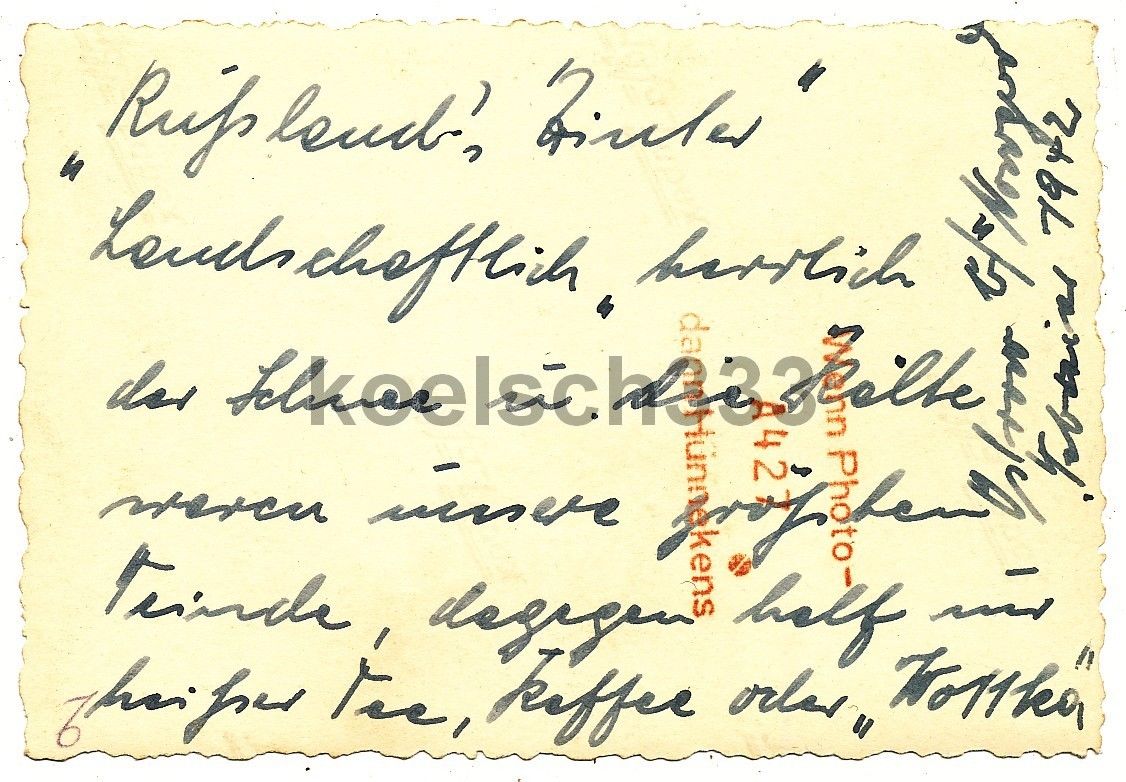 „Rußland's Winter"
Landschaftlich „herrlich
der Schnee u. die Kälte
waren unsere größten
Feinde, dagegen half nur
heißer Tee, Kaffee oder „Wottka"
Februar 1942
Wenn Photo-
A427
dann Hünnekens
koelsch333
6